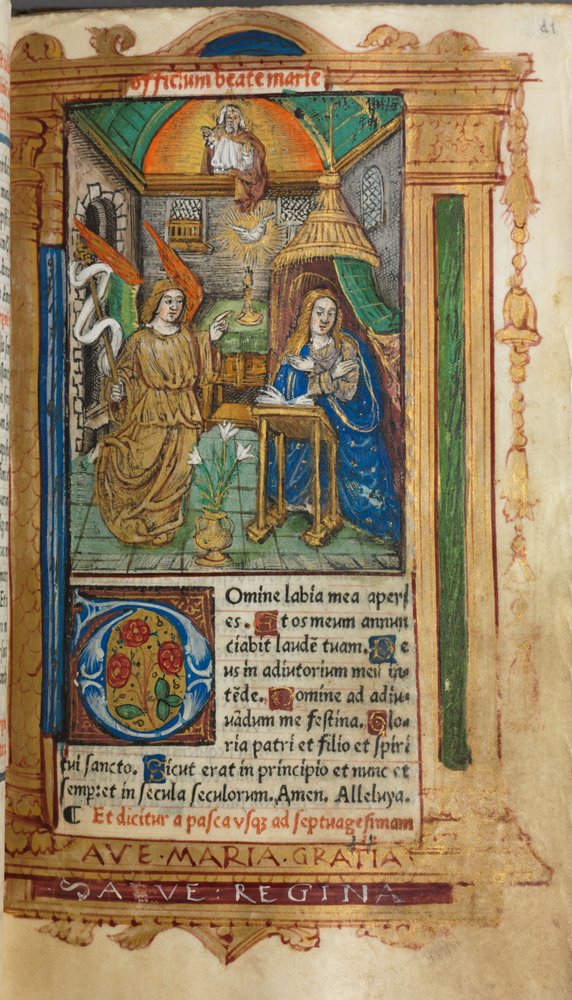 d1
officium beate marie
Domine labia mea aperi
es. Et os meum annun
ciabit laudẽ tuam. De
us in adiutorium meũ in
tẽde. Domine ad adiu
uãdum me festina. Glo
ria patri et filio et spiri
tui sancto. Sicut erat in principio et nunc et
semp: et in secula seculorum. Amen. Alleluya.
¶ Et dicitur a pasca vsqꝫ ad septuagesimam
AVE·MARIA·GRATIA
SALVE:REGINA